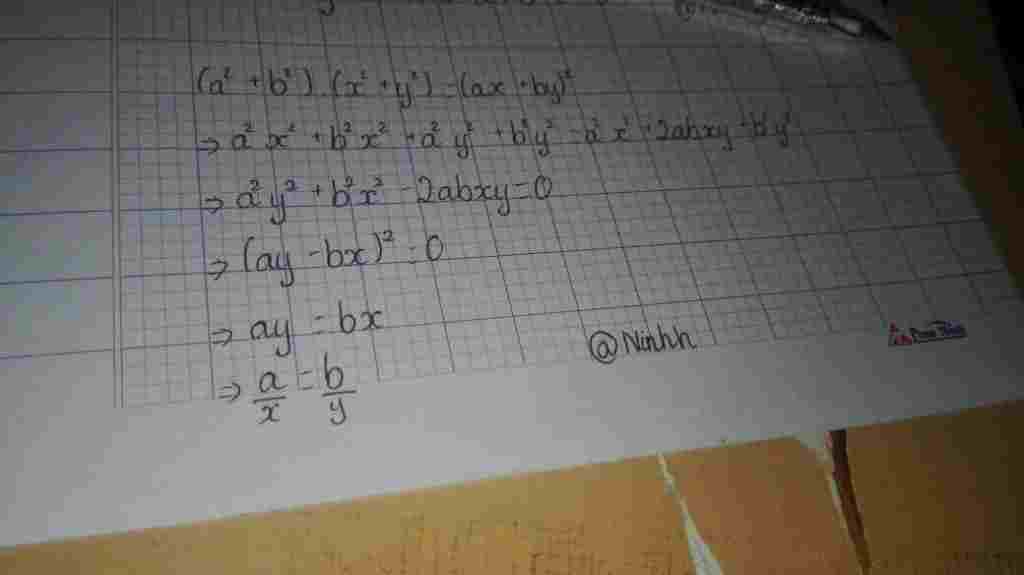 (a² + b²).(x² + y²) = (ax + by)²
⇒ a²x² + b²x² + a²y² + b²y² = a²x² + 2abxy + b²y²
⇒ a²y² + b²x² - 2abxy = 0
⇒ (ay - bx)² = 0
⇒ ay = bx
⇒ a/x = b/y
@Ninhh